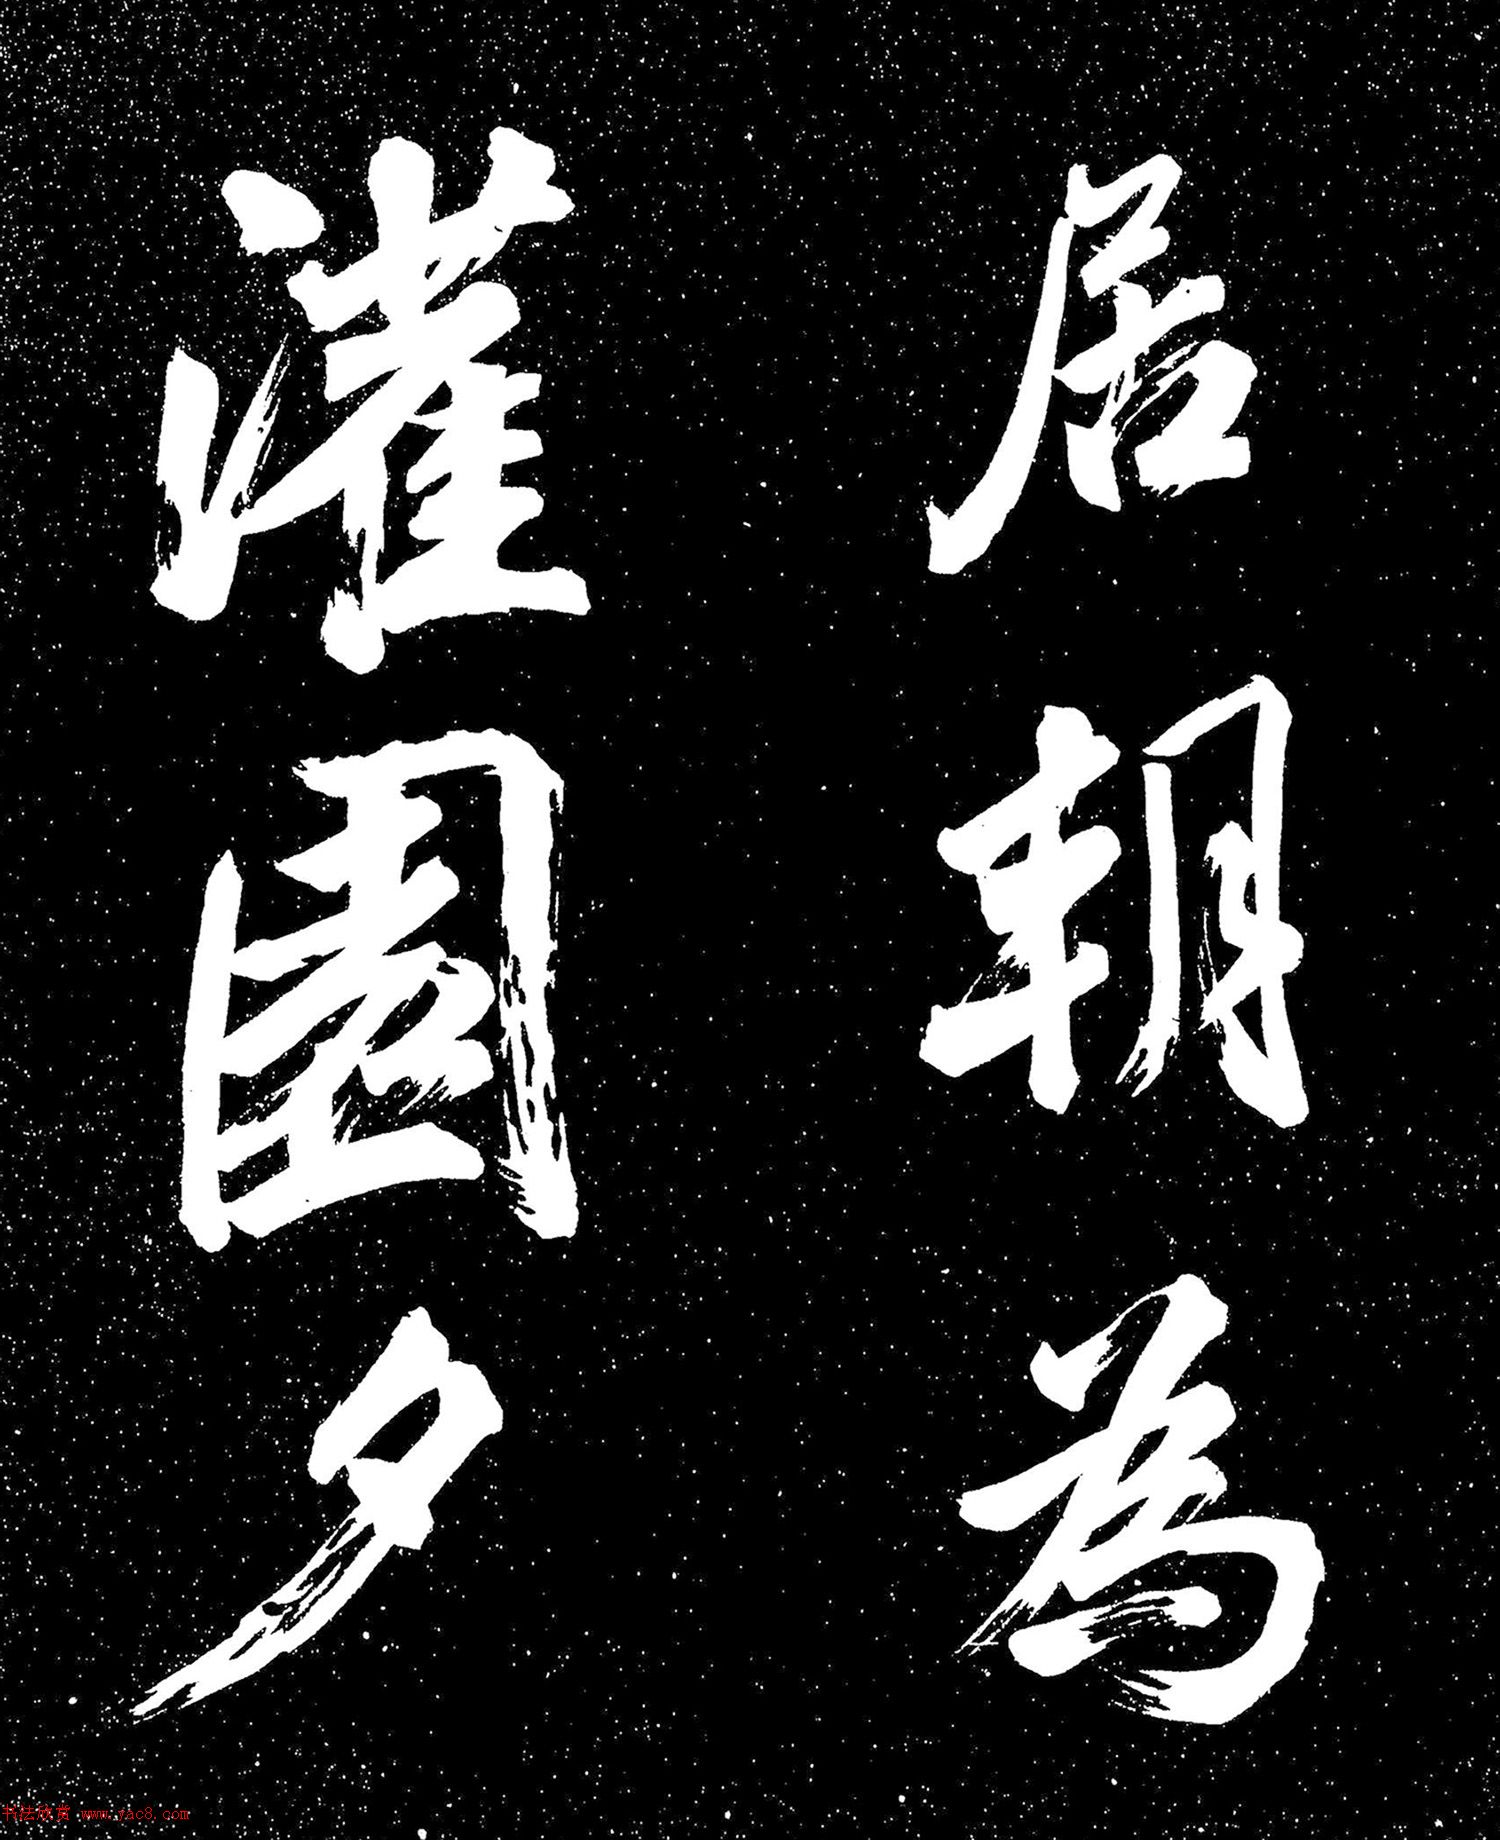 居朝為
灌園夕
书法欣赏 www.yac8.com